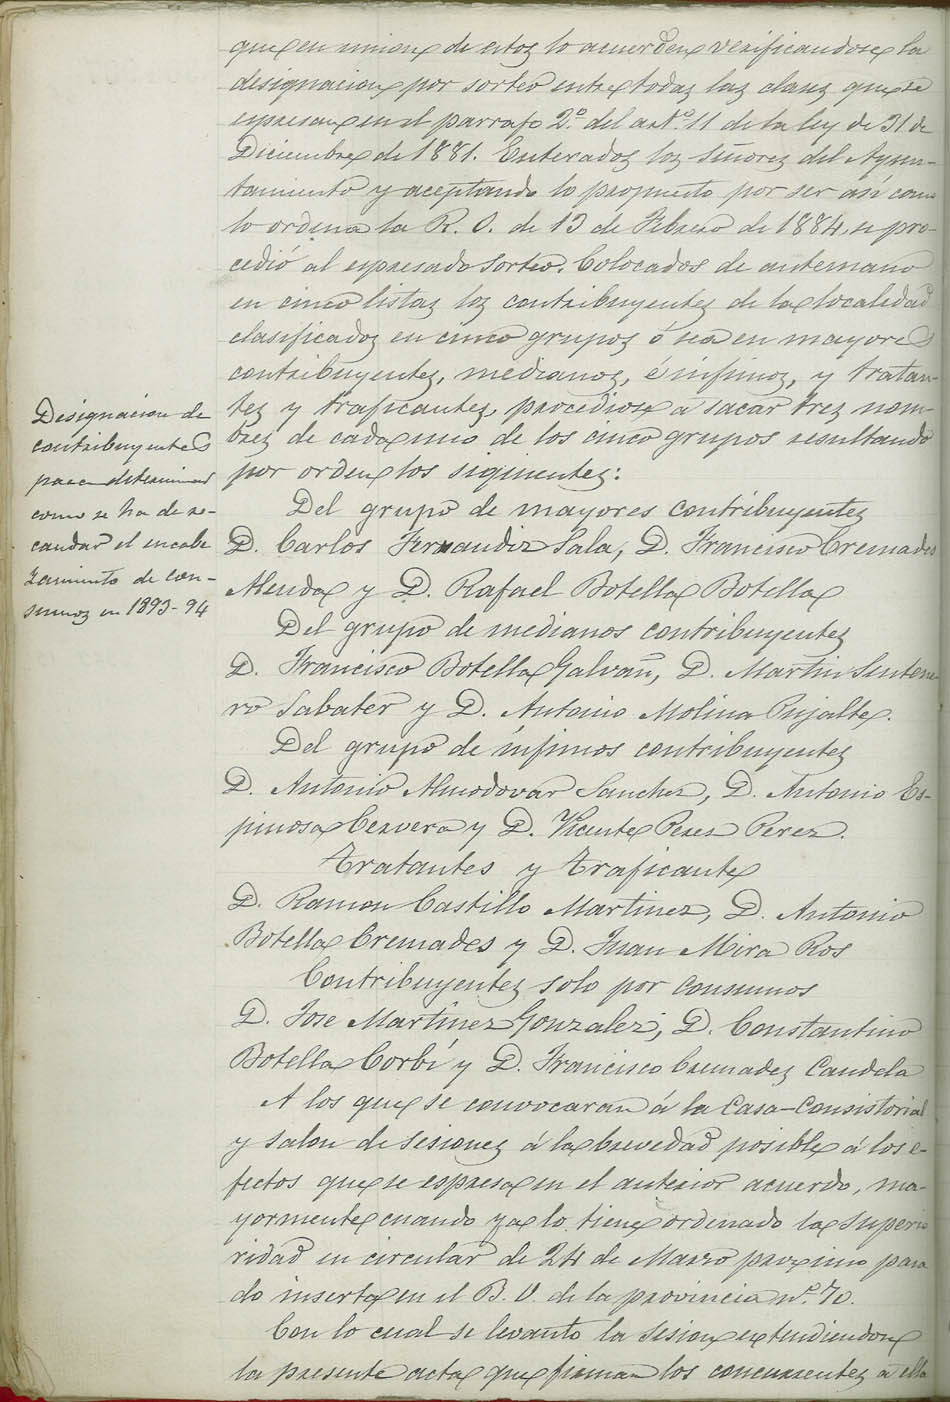 que en union de estos lo acuerden verificandose la
designacion por sorteo entre todas las clases que se
espresan en el parrafo 2.º del art.º 11 de la ley de 31 de
Diciembre de 1881. Enterados los señores del Ayun-
tamiento y aceptando lo propuesto por ser asi como
lo ordena la R. O. de 13 de Febrero de 1884, se pro-
cedió al espresado sorteo. Colocados de antemano
en cinco listas los contribuyentes de la localidad
clasificados en cinco grupos ó sea en mayores
contribuyentes, medianos, é infimos, y tratan-
tes y traficantes, procediose a sacar tres nom-
bres de cada uno de los cinco grupos resultando
por orden los siguientes:
Designacion de
contribuyentes
para determinar
como se ha de re-
caudar el encabe
zamiento de con-
sumos en 1893-94
Del grupo de mayores contribuyentes
D. Carlos Fernandez Sala, D. Francisco Cremades
Abenda y D. Rafael Botella Botella
Del grupo de medianos contribuyentes
D. Francisco Botella Galvañ, D. Martin Sentene
ro Sabater y D. Antonio Molina Pujalte.
Del grupo de infimos contribuyentes
D. Antonio Almodovar Sanchez, D. Antonio Es-
pinosa Cervera y D. Vicente Perez Perez.
Tratantes y Traficantes
D. Ramon Castillo Martinez, D. Antonio
Botella Cremades y D. Juan Mira Ros
Contribuyentes solo por consumos
D. Jose Martinez Gonzalez, D. Constantino
Botella Corbí y D. Francisco Cremades Candela
A los que se convocaran á la Casa-Consistorial
y salon de sesiones á la brevedad posible á los e-
fectos que se espresa en el anterior acuerdo, ma-
yormente cuando ya lo tiene ordenado la Superio
ridad en circular de 24 de Marzo proximo pasa
do inserta en el B. O. de la provincia nº. 70.
Con lo cual se levanto la sesion extendiendose
la presente acta que firman los concurrentes a ella